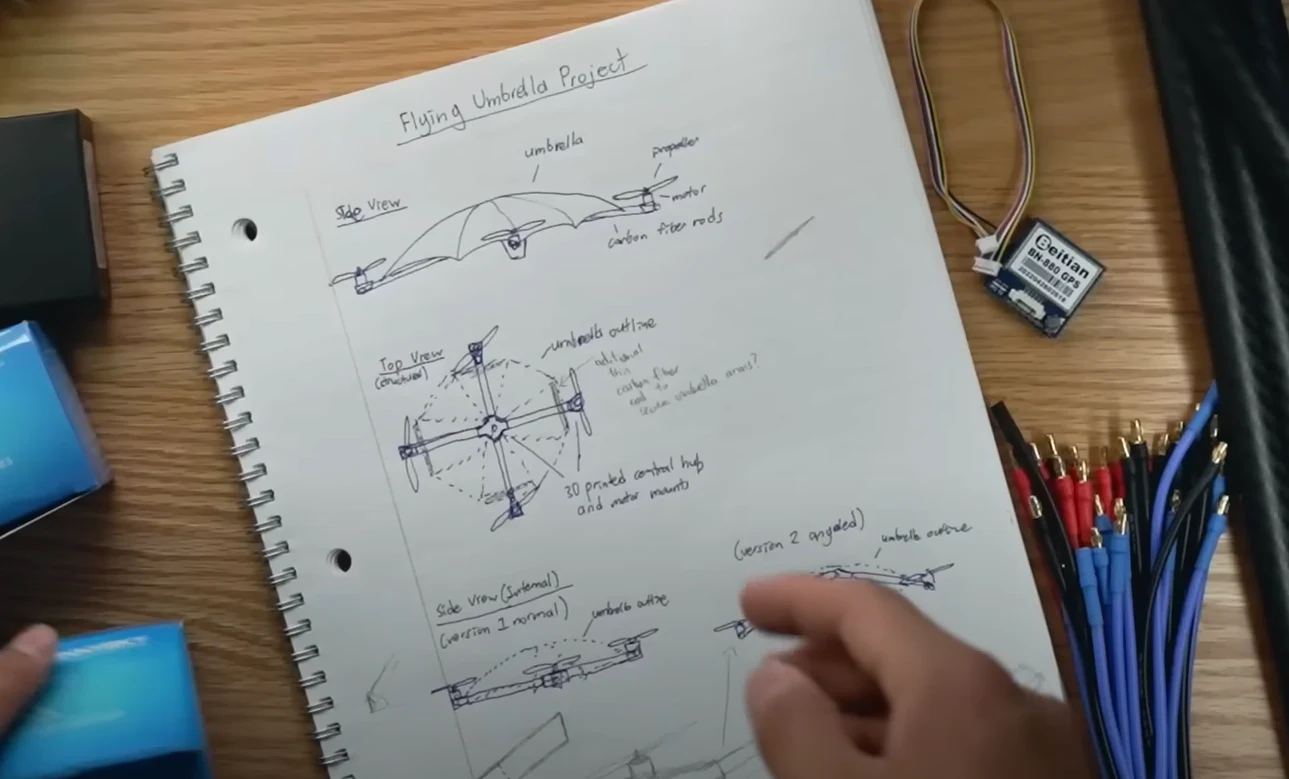 Flying Umbrella Project
umbrella
propeller
motor
Side View
carbon fiber rods
umbrella outline
Top View
(structural)
additional
thin
carbon fiber
rod to
secure umbrella arms?
3D printed central hub
and motor mounts
(version 2 angled)
umbrella outline
Side View (Internal)
(version 1 normal)
umbrella outline
Beitian
BN-880 GPS